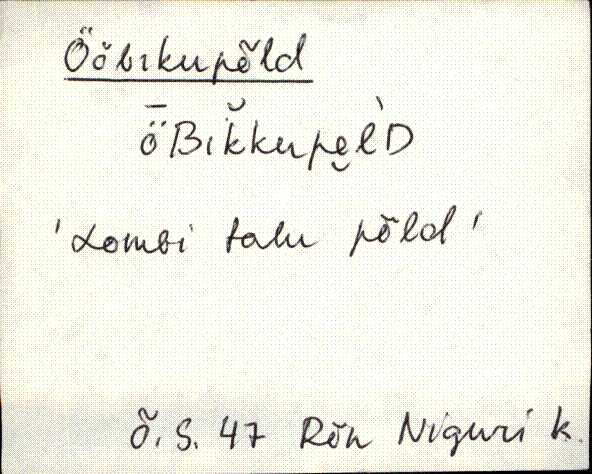 Ööbikupõld
ȫBik̆kupe̮l̀D
'Lombi talu põld'
Õ. S. 47 Rõn Niguri k.